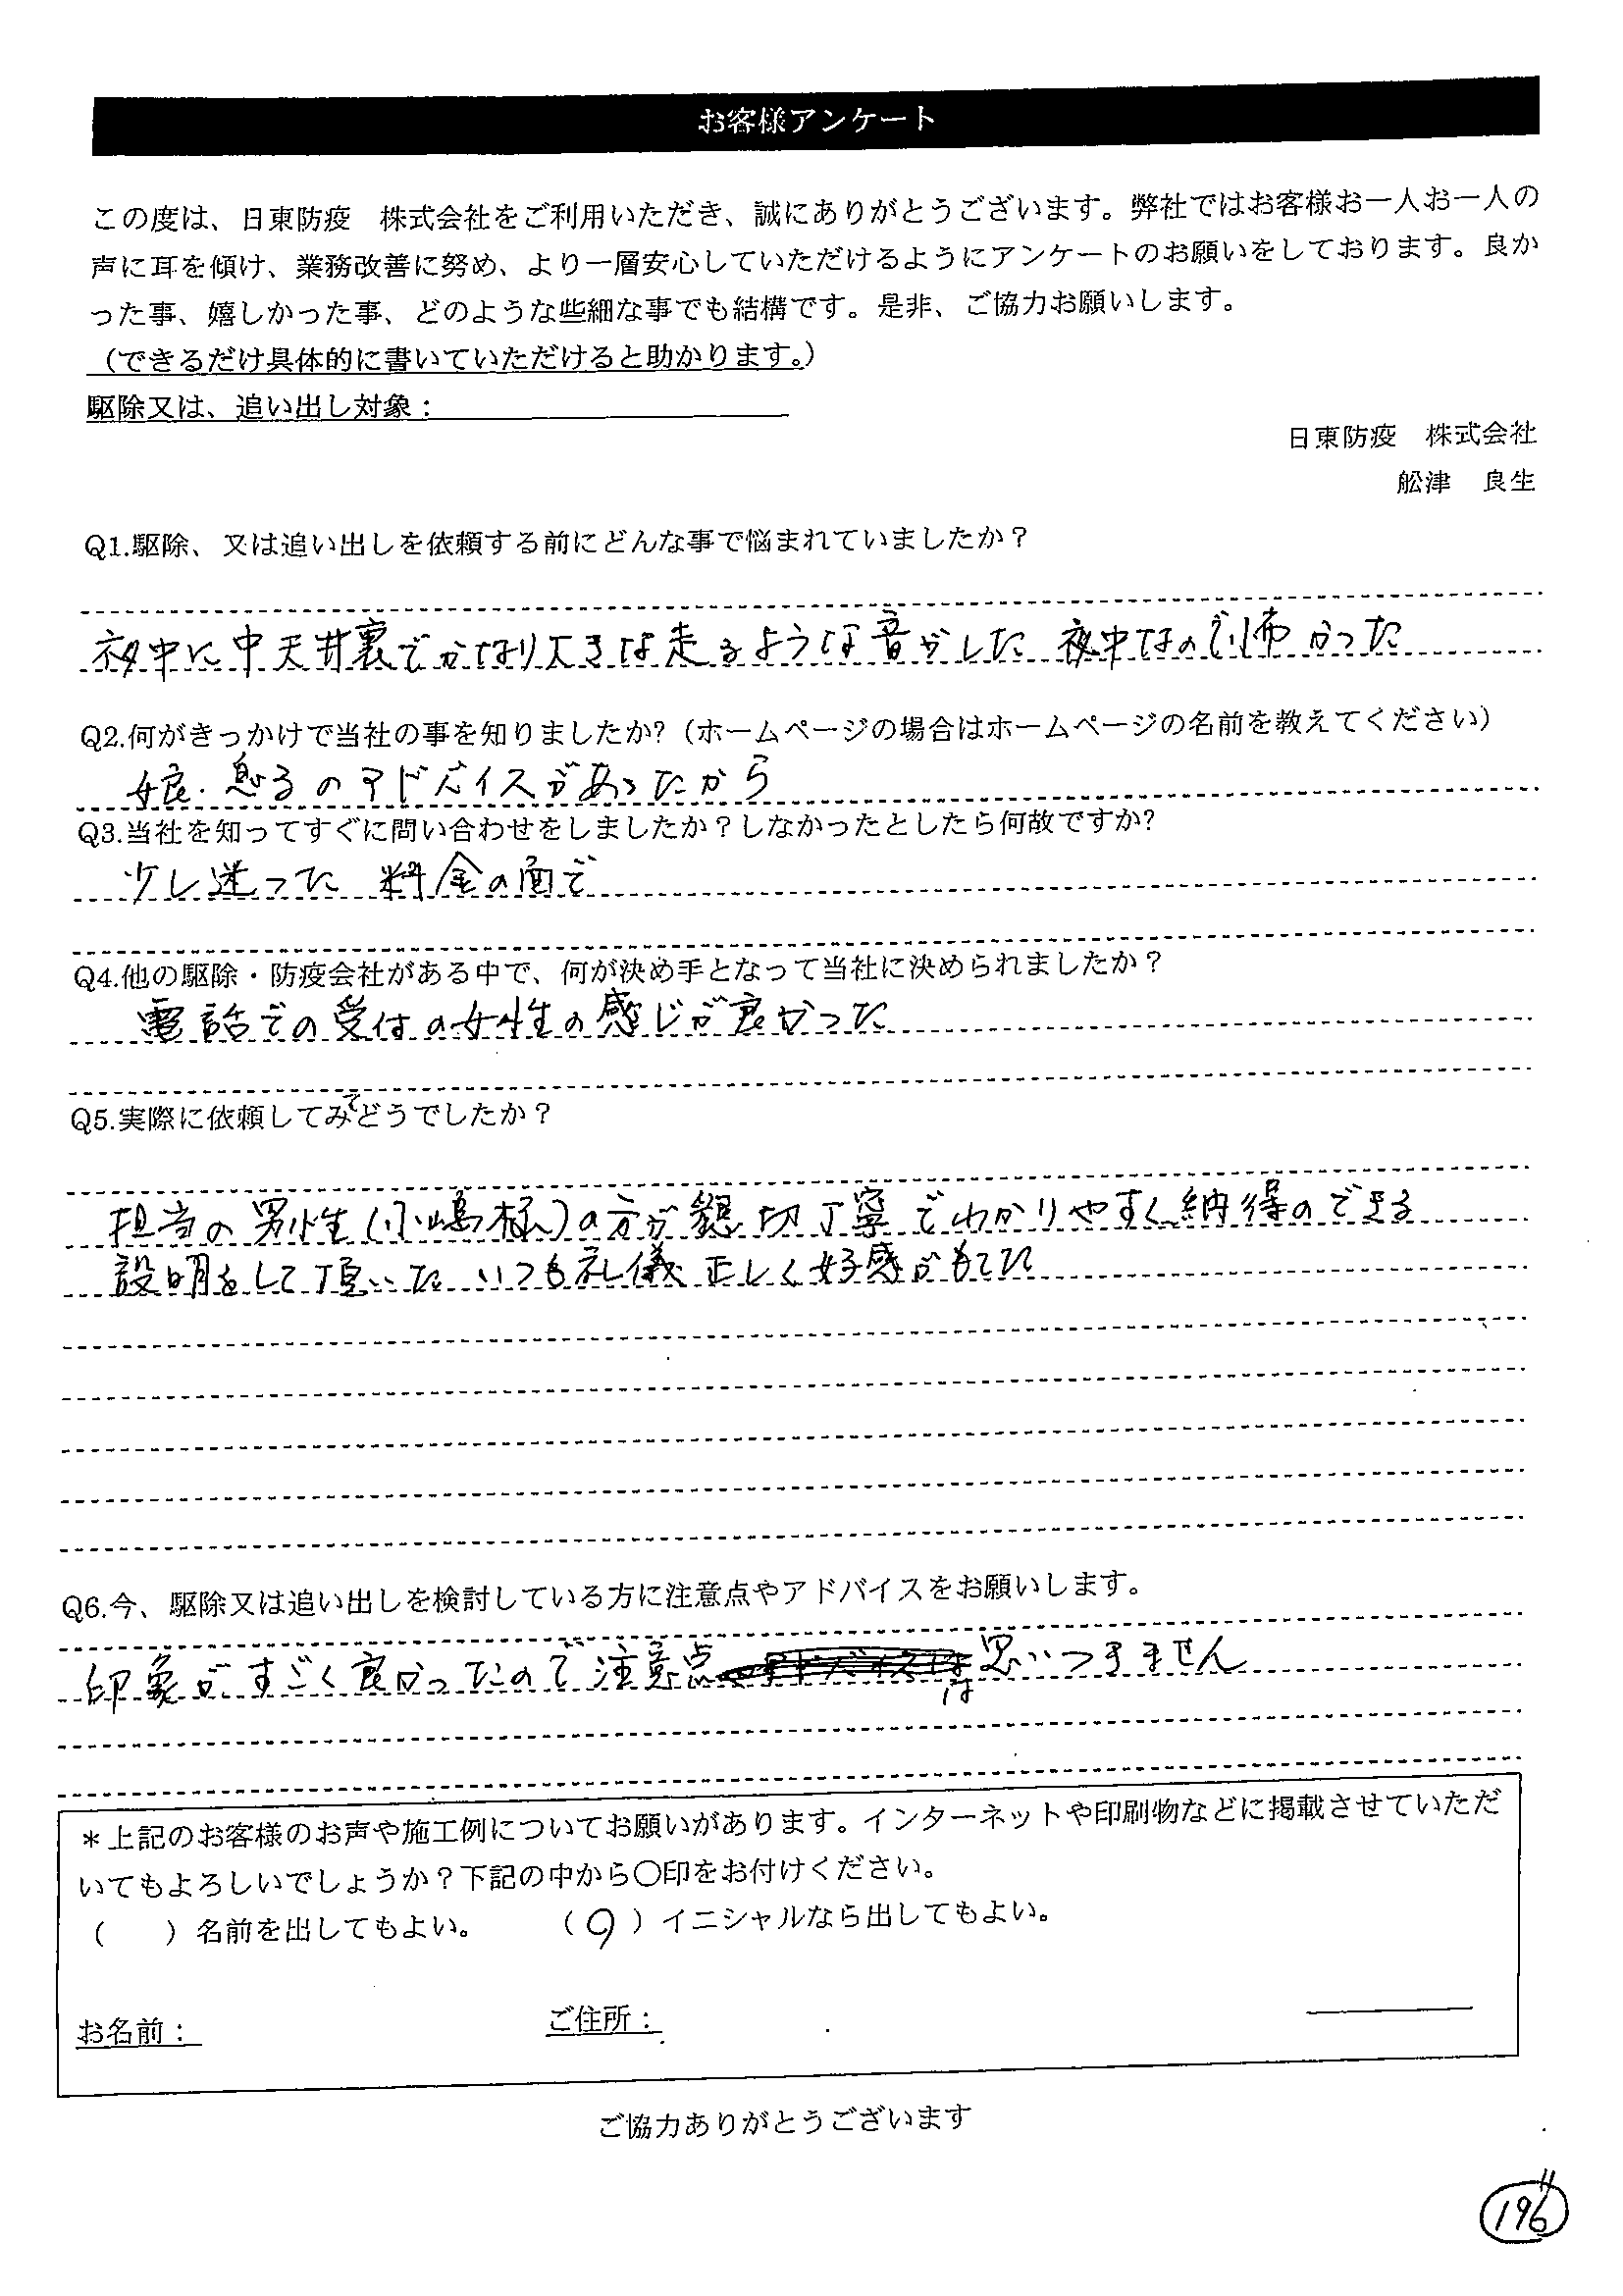 お客様アンケート
この度は、日東防疫　株式会社をご利用いただき、誠にありがとうございます。弊社ではお客様お一人お一人の
声に耳を傾け、業務改善に努め、より一層安心していただけるようにアンケートのお願いをしております。良か
った事、嬉しかった事、どのような些細な事でも結構です。是非、ご協力お願いします。
（できるだけ具体的に書いていただけると助かります。）
駆除又は、追い出し対象：
日東防疫　株式会社
舩津　良生
Q1.駆除、又は追い出しを依頼する前にどんな事で悩まれていましたか？
夜中に中天井裏でかなり大きな走るような音がした 夜中なので怖かった
Q2.何がきっかけで当社の事を知りましたか?（ホームページの場合はホームページの名前を教えてください）
娘・息子のアドバイスがあったから
Q3.当社を知ってすぐに問い合わせをしましたか？しなかったとしたら何故ですか?
少し迷った 料金の面で
Q4.他の駆除・防疫会社がある中で、何が決め手となって当社に決められましたか？
電話での受付の女性の感じが良かった
Q5.実際に依頼してみてどうでしたか？
担当の男性(小嶋様)の方が懇切丁寧でわかりやすく納得のできる
説明をして頂いた いつも礼儀正しく好感がもてた
Q6.今、駆除又は追い出しを検討している方に注意点やアドバイスをお願いします。
印象がすごく良かったので注意点は思いつきません
＊上記のお客様のお声や施工例についてお願いがあります。インターネットや印刷物などに掲載させていただ
いてもよろしいでしょうか？下記の中から〇印をお付けください。
（　　）名前を出してもよい。　　（〇）イニシャルなら出してもよい。
お名前：　　ご住所：
ご協力ありがとうございます
196